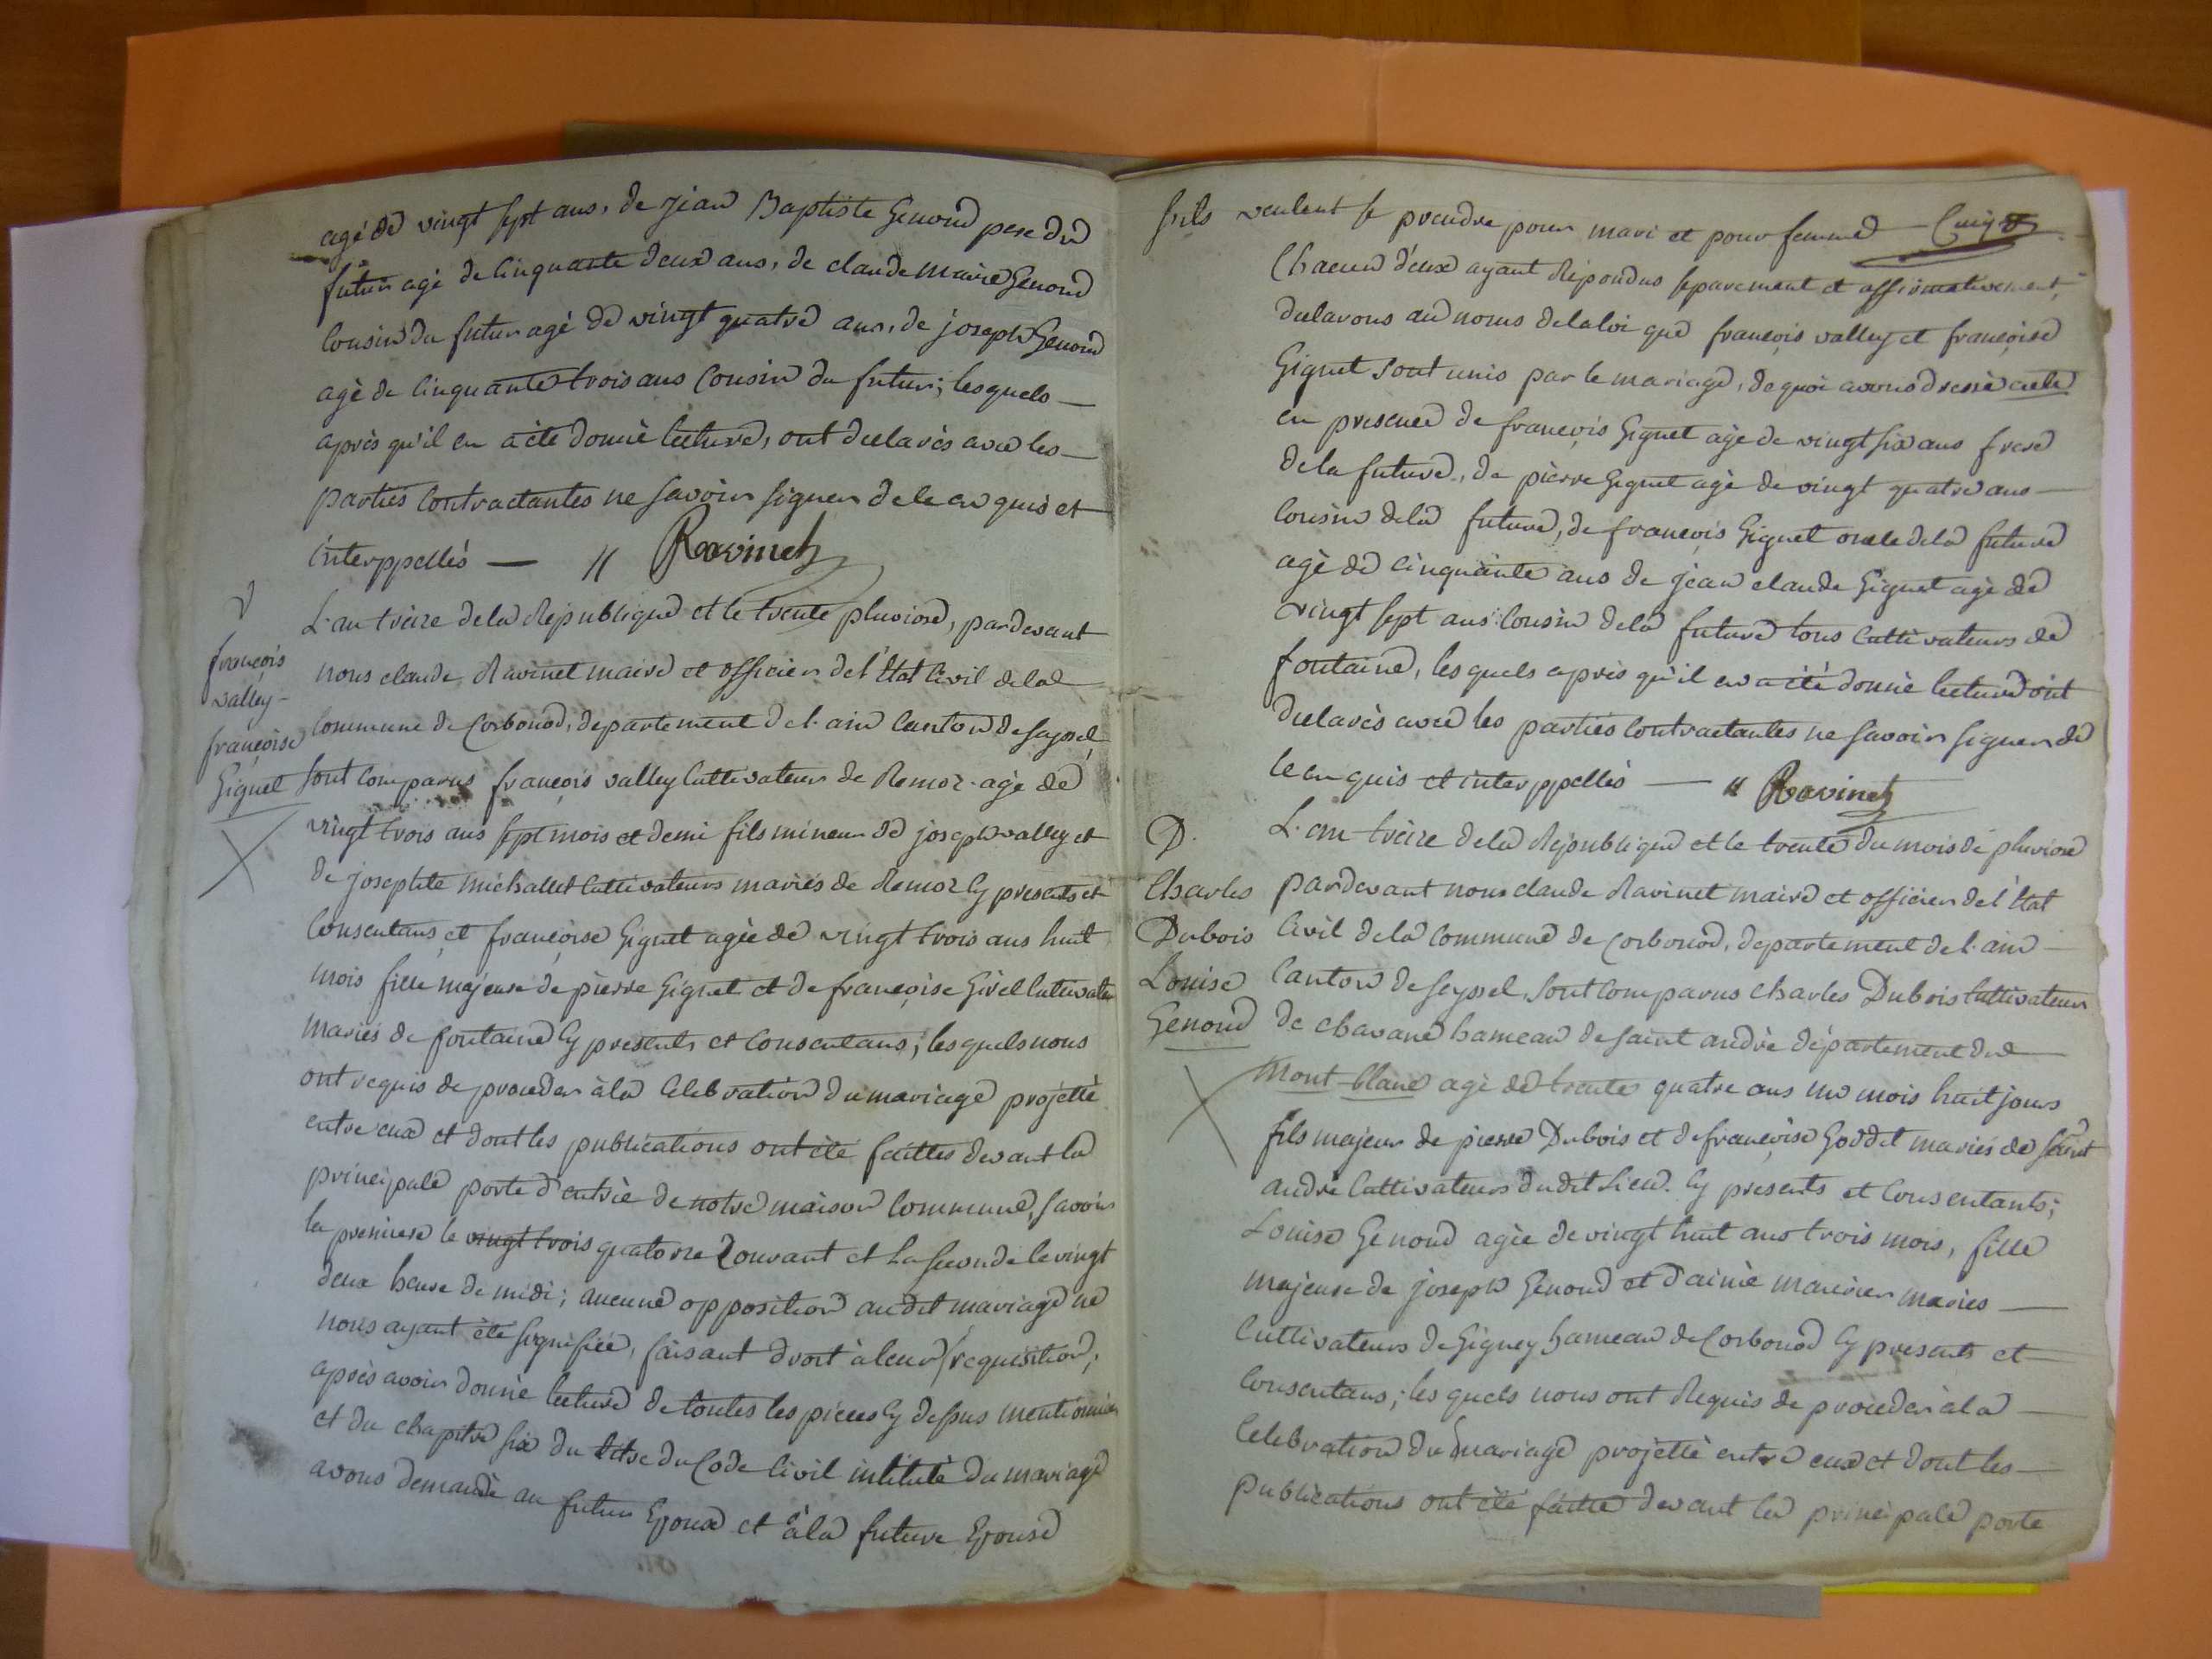 agé de vingt sept ans, de jean Baptiste Genoud pere du
futur agé de Cinquante deux ans, de claude marie Genoud
Cousin du futur agé de vingt quatre ans, de joseph Genoud
agé de Cinquante trois ans Cousin du futur; lesquels —
après qu'il en a été donnié lecture, ont declarés avec les —
parties Contractantes ne savoir signer de ce en quis et
interppellés — // Ravinet
L'an treize de la République et le trente pluviose, pardevant
nous claude Ravinet maire et officier de l'Etat Civil de la
Commune de Corbonod, departement de l'ain Canton de seyssel,
sont Comparus françois valley Cultivateur de Remoz agé de
vingt trois ans sept mois et demi fils mineur de joseph valley et
de josephte michallet Cultivateurs mariés de Remoz Cy presents et
Consentans, et françoise Gignet agée de vingt trois ans huit
mois fille majeuse de pierre Gignet et de françoise Givel Cultivateurs
mariés de fontaine Cy presents et Consentans; lesquels nous
ont requis de proceder à la Celebration du mariage projetté
entre eux et dont les publications ont été faittes devant la
principale porte d'entrée de notre maison Commune, savoir
la premiere le vingt trois quatorze Courant et la seconde le vingt
deux heure de midi; aucune opposition audit mariage ne
nous ayant été signifiée, faisant droit à leur requisition,
après avoir donnié lecture de toutes les pieces Cy dessus mentionnées
et du chapitre six du titre du Code Civil intitulé du mariage
avons demandé au futur Epoux et à la future Epouse
françois
valley -
françoise
Gignet
s'ils veulent se prendre pour mari et pour femme —
Chacun d'eux ayant Répondus separement et affirmativement,
declarons au nom de la loi que françois valley et françoise
Gignet sont unis par le mariage, de quoi avons dressé acte
en presence de françois Gignet agé de vingt six ans frere
de la future, de pierre Gignet agé de vingt quatre ans —
Cousin de la future, de françois Gignet oncle de la future
agé de Cinquante ans de jean claude Gignet agé de
vingt sept ans Cousin de la future tous Cultivateurs de
fontaine, lesquels après qu'il en a été donnié lecture ont
declarés avec les parties Contractantes ne savoir signer de
ce en quis et interppellés — // Ravinet
L'an treize de la République et le trente du mois de pluviose
pardevant nous claude Ravinet maire et officier de l'Etat
Civil de la Commune de Corbonod, departement de l'ain —
Canton de seyssel, sont Comparus charles Dubois Cultivateur
de chavane hameau de saint andré département du
Mont-blanc agé de trente quatre ans un mois huit jours
fils majeur de pierre Dubois et de françoise Goddet mariés de saint
andré Cultivateurs dudit Lieu. Cy presents et Consentants;
Louise Genoud agée de vingt huit ans trois mois, fille
majeuse de joseph Genoud et d'aimée mariés —
Cultivateurs de Gigney hameau de Corbonod Cy presents et
Consentans; lesquels nous ont Requis de proceder à la —
Celebration du mariage projetté entre eux et dont les —
publications ont été faitte devant la principale porte
D.
Charles
Dubois
Louise
Genoud